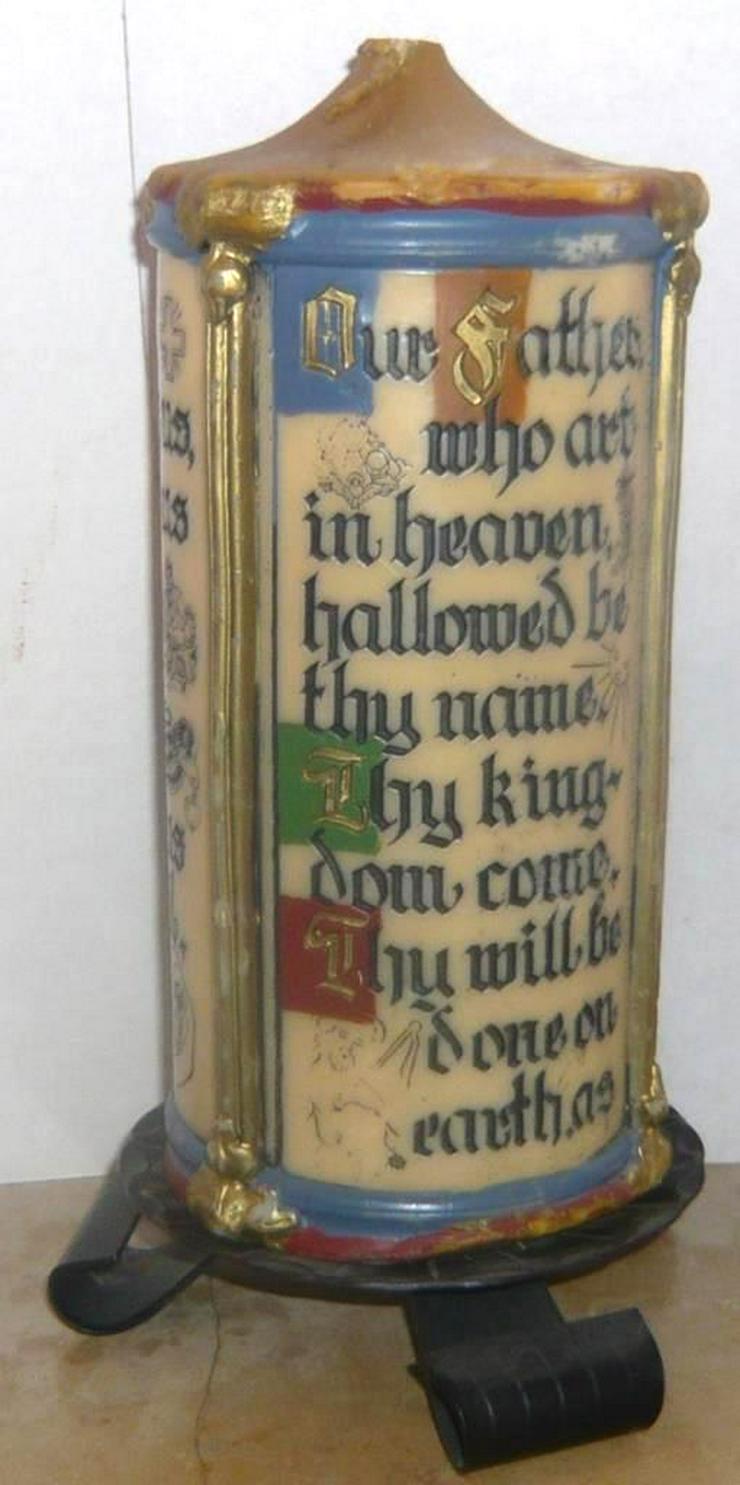 Our Father
who art
in heaven,
hallowed be
thy name.
Thy king-
dom come.
Thy will be
done on
earth, as
us,
us
is